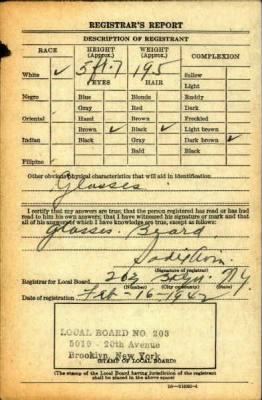 REGISTRAR'S REPORT
DESCRIPTION OF REGISTRANT
RACE HEIGHT (Approx.) WEIGHT (Approx.) COMPLEXION
White ✓ 5 ft. 7 195 Sallow
EYES HAIR Light
Negro Blue Blonde Ruddy
Gray Red Dark
Oriental Hazel Brown Freckled
Brown ✓ Black ✓ Light brown
Indian Black Gray Dark brown ✓
Bald Black
Filipino
Other obvious physical characteristics that will aid in identification
Glasses
I certify that my answers are true; that the person registered has read or has had
read to him his own answers; that I have witnessed his signature or mark and that
all of his answers of which I have knowledge are true, except as follows:
Glasses. Beard
(Signature of registrar)
Registrar for Local Board 203 Bklyn. N.Y.
(Number) (City or county)
Date of registration Feb - 16 - 1942
LOCAL BOARD NO. 203
5019 - 20th Avenue
Brooklyn, New York
(STAMP OF LOCAL BOARD)
(The stamp of the Local Board having jurisdiction of the registrant
shall be placed in the above space)